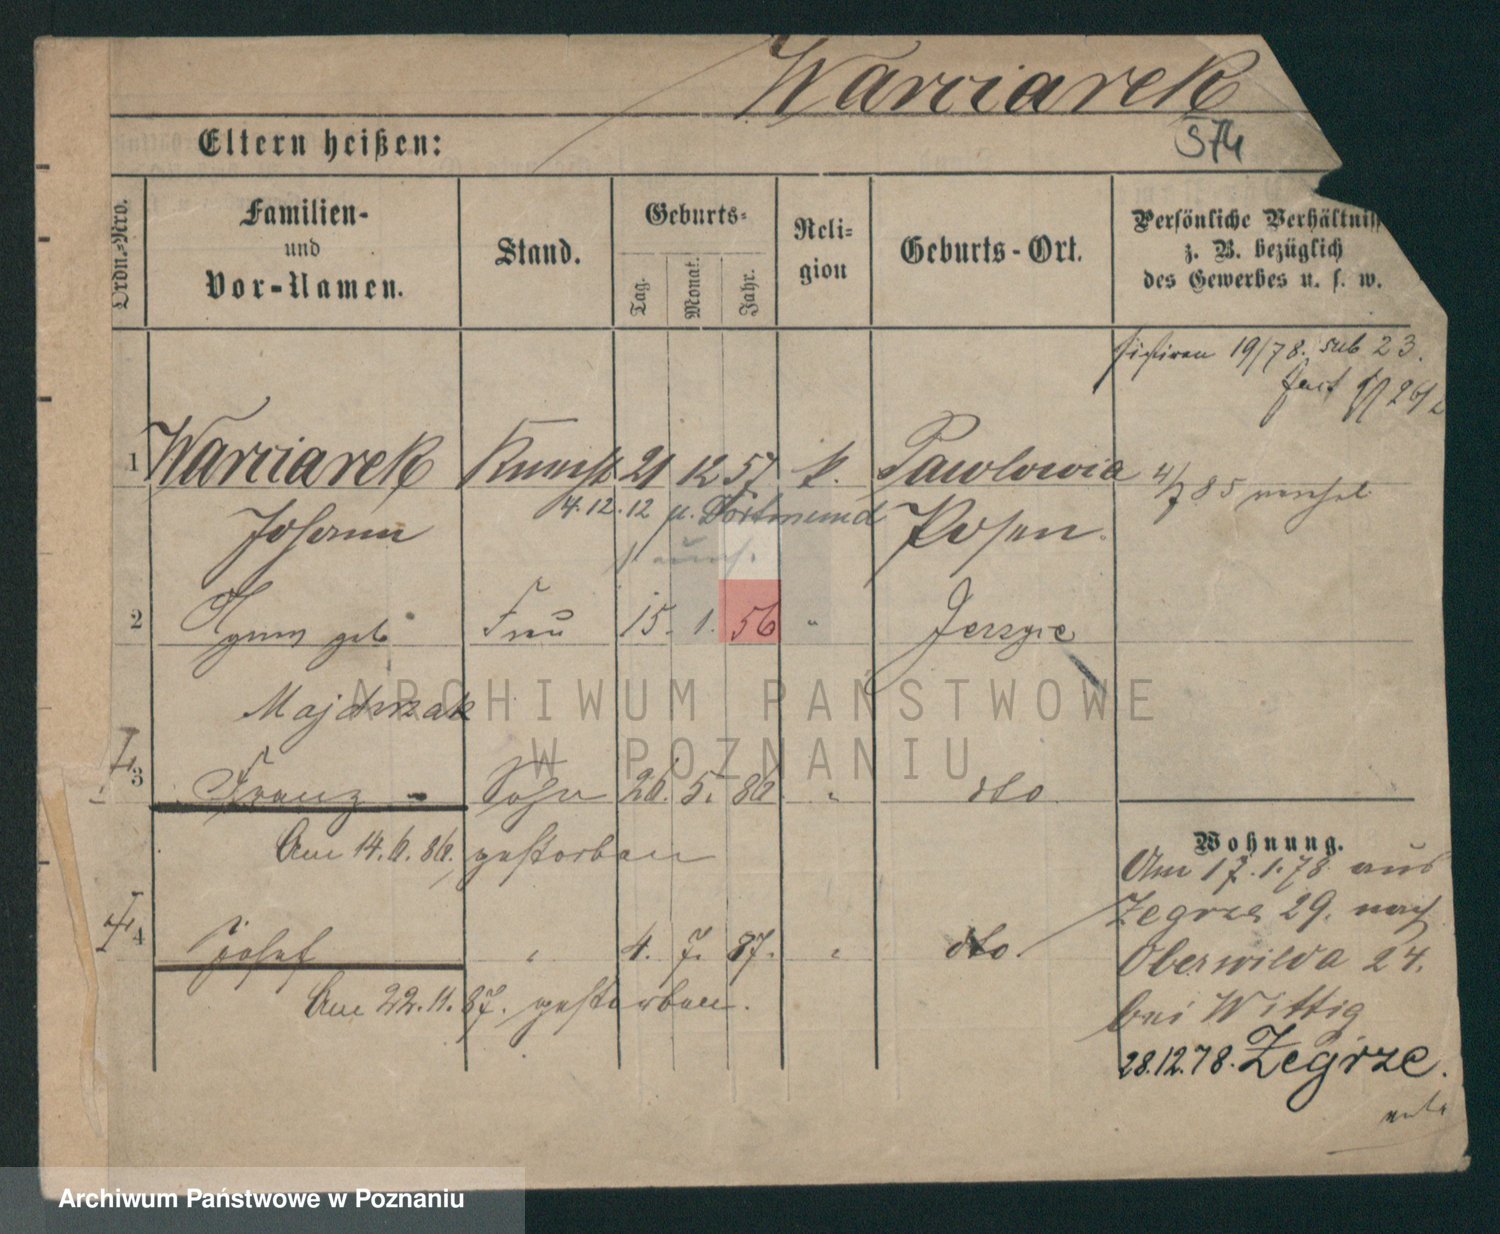 Warciarek
S74
Eltern heißen:
Ordn.-Nro.
Familien-
und
Vor-Namen.
Stand.
Geburts-
Tag.
Monat.
Jahr.
Reli-
gion
Geburts-Ort.
Persönliche Verhältniss
z. B. bezüglich
des Gewerbes u. s. w.
19/78. sub 23.
1 Warciarek 21 12 57 k. Pawlowia
4/7 85
Johann 4.12.12 n. Dortmund Posen.
2 Agnes geb. Frau 15. 1. 56 " Jerzyce
Majchrzak
3 Franz - Sohn 26. 5. 86 " dto
Am 14.6.86. gestorben
4 Josef " 4. 7. 87. " dto.
Am 22.11.87. gestorben.
Wohnung.
Am 17.1.78 aus
Zegrze 29. nach
Oberwilda 24.
bei Wittig
28.12.78. Zegrze.
ARCHIWUM PAŃSTWOWE
W POZNANIU
Archiwum Państwowe w Poznaniu